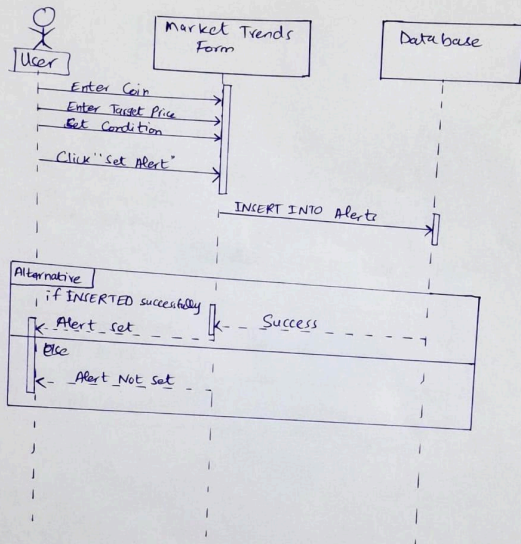 User
Market Trends
Form
Database
Enter Coin
Enter Target Price
Set Condition
Click "Set Alert"
INSERT INTO Alerts
Alternative
if INSERTED successfully
Alert set
Success
Else
Alert Not set